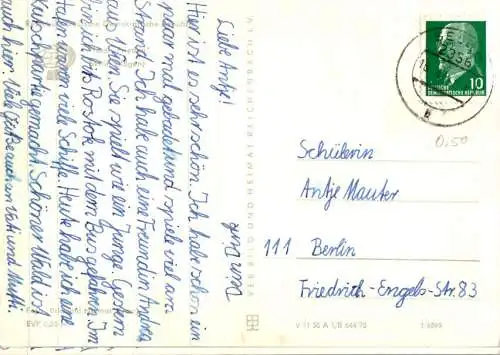 Liebe Antje!
Hier ist es sehr schön. Ich habe schon ein
paar mal gebadet und spiele viel am
Strand. Ich habe auch eine Freundin Andrea
aus Wien. Sie spielt wie ein Junge. Gestern
bin ich bis Rostock mit dem Bus gefahren. Im
Hafen waren viele Schiffe. Heute habe ich eine
Kutschfahrt gemacht. Schöner Wald ist
auch hier. Viele Grüße auch an Vati und Mutti.
Deine Birgit
VERBILD UND HEIMAT REICHENBACH I. V.
EVP 0,20
V 11 50 A 1/B 644/75
1 6899
2356
10
DEUTSCHE
DEMOKRATISCHE REPUBLIK
0,50
Schülerin
Antje Mauter
111 Berlin
Friedrich-Engels-Str. 83